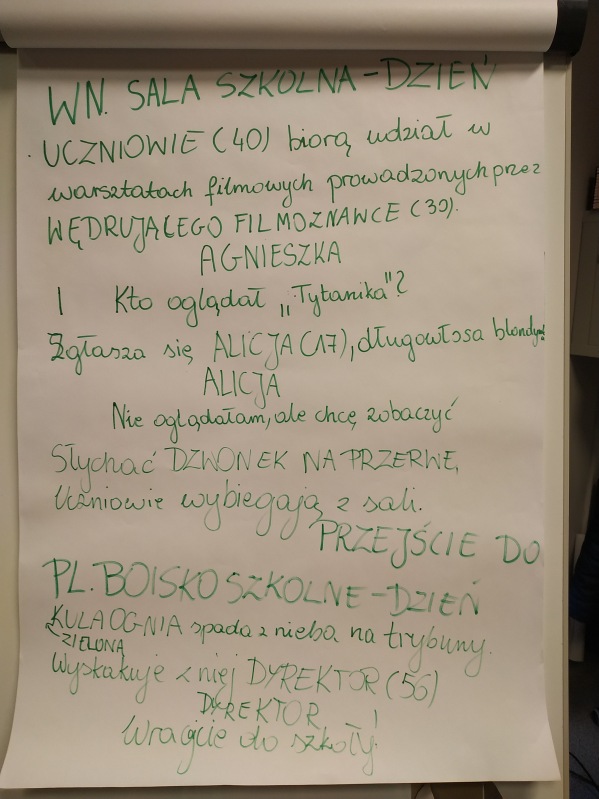 WN. SALA SZKOLNA - DZIEŃ
UCZNIOWIE (40) biorą udział w
warsztatach filmowych prowadzonych przez
WĘDRUJĄCEGO FILMOZNAWCE (30).
AGNIESZKA
Kto oglądał „Tytanika"?
Zgłasza się ALICJA (17), długowłosa
ALICJA
Nie oglądałam, ale chcę zobaczyć
Słychać DZWONEK NA PRZERWĘ,
Uczniowie wybiegają z sali.
PRZEJŚCIE DO
PL. BOISKO SZKOLNE - DZIEŃ
KULA OGNIA spada z nieba na trybuny.
ZIELONA
Wyskakuje z niej DYREKTOR (56)
DYREKTOR
Wracjcie do szkoły!